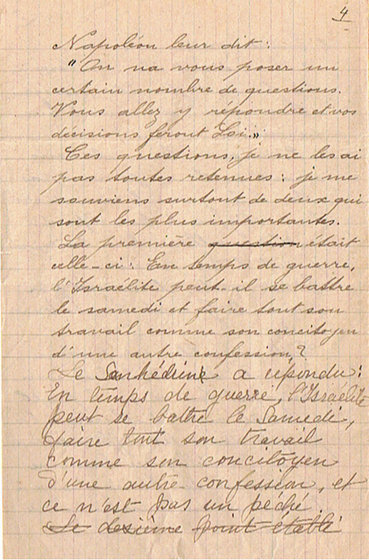 4
Napoléon leur dit :
"On va vous poser un
certain nombre de questions.
Vous allez y répondre et vos
décisions feront Loi.»
Ces questions, je ne les ai
pas toutes retenues : je me
souviens surtout de deux qui
sont les plus importantes.
La première question était
celle-ci : En temps de guerre,
l'Israélite peut-il se battre
le samedi et faire tout son
travail comme son concitoyen
d'une autre confession ?
Le Sanhédrin a répondu :
En temps de guerre, l'Israélite
peut se battre le Samedi,
faire tout son travail
comme son concitoyen
d'une autre confession, et
ce n'est pas un péché
Le dexième point établi